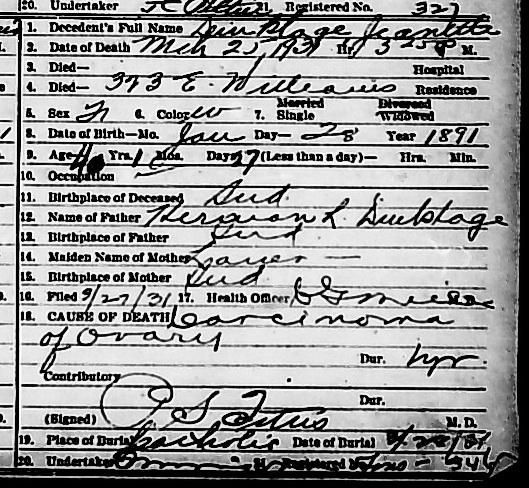 20. Undertaker 21. Registered No. 327
1. Decedent's Full Name Dinklage Jeanette
2. Date of Death Mch 25, 1931 Hr. 3 25 P M.
3. Died— Hospital
4. Died— 323 E Williams Residence
5. Sex F 6. Color W 7. Married Single Divorced Widowed
8. Date of Birth—Mo. Jan Day— 28 Year 1891
9. Age 40 Yrs. 1 Mos. Days 27 (Less than a day)— Hrs. Min.
10. Occupation
11. Birthplace of Deceased Ind.
12. Name of Father Herman L. Dinklage
13. Birthplace of Father Ind
14. Maiden Name of Mother —
15. Birthplace of Mother Ind
16. Filed 3/27/31 17. Health Officer
18. CAUSE OF DEATH Carcinoma
of Ovary
Dur. 1 yr.
Contributory
Dur.
(Signed) P S Titus M. D.
19. Place of Burial Catholic Date of Burial
20. Undertaker 21. Registered No.